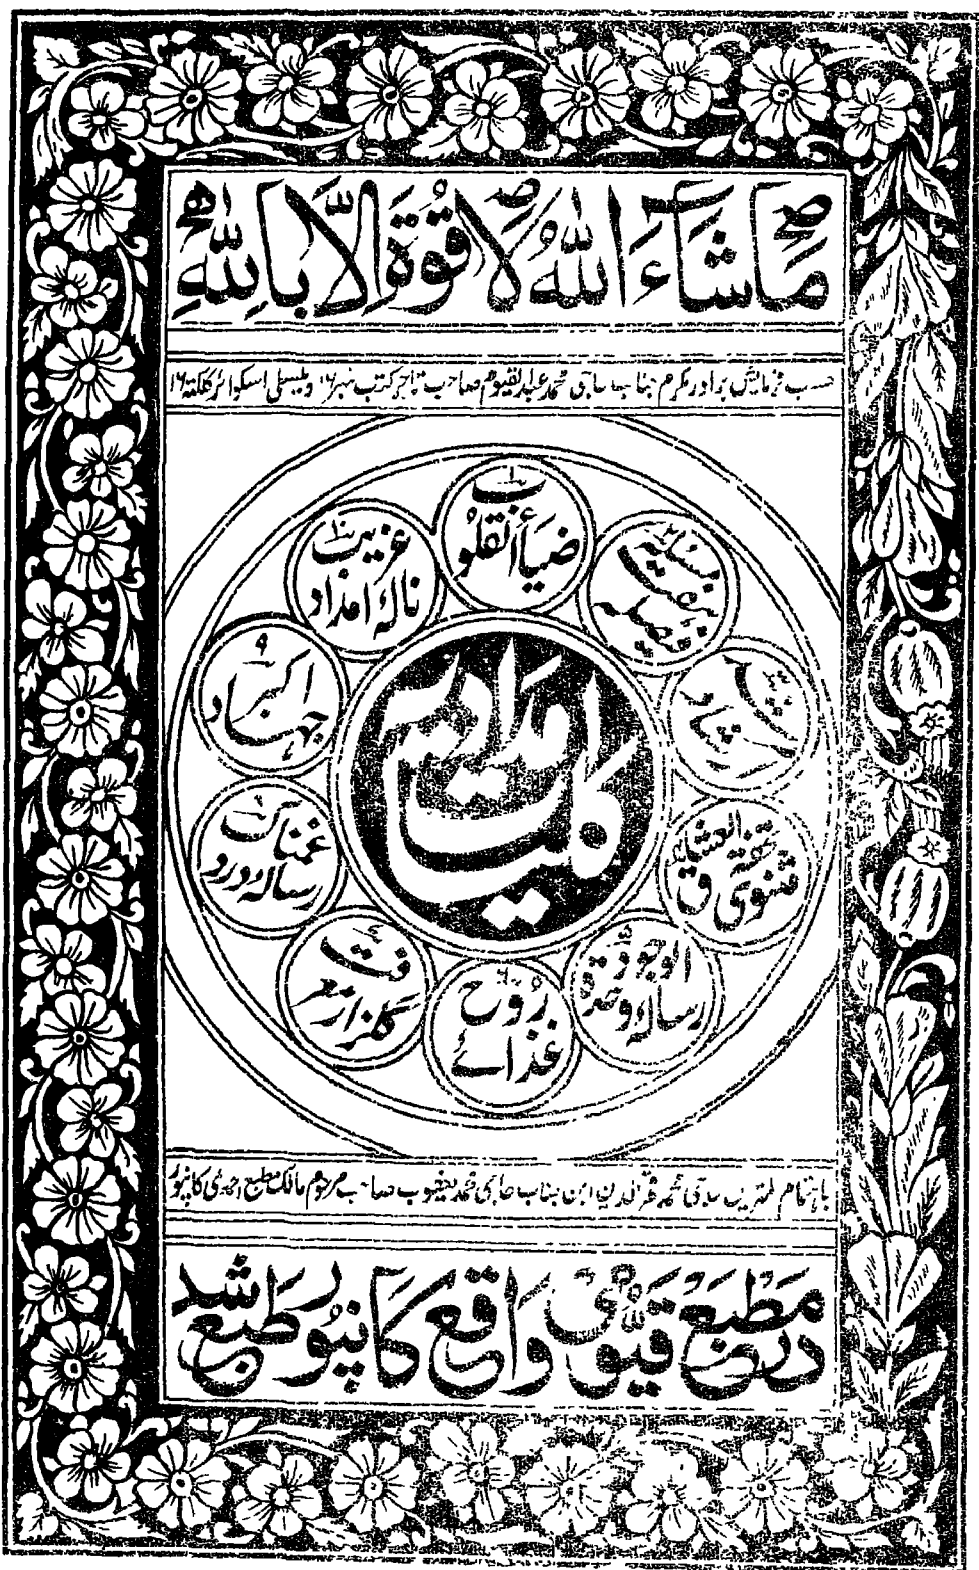 ماشآءَ اللہُ لا قُوّةَ اِلّا بِاللہِ
حسب فرمایش برادر مکرم جناب حاجی محمد عبد القیوم صاحب تاجر کتب نمبر ۱۶ ویلسلی اسکوائر کلکتہ ۱۶
ضیاء القلوب
فیصلہ ہفت مسئلہ
ارشاد مرشد
مثنوی تحفۃ العشاق
رسالہ وحدۃ الوجود
غذائے روح
گلزار معرفت
رسالہ درد غمناک
۹
جہاد اکبر
نالہ امداد غریب
کلیات امدادیہ
باہتمام کمترین حاجی محمد قمر الدین ابن جناب حاجی محمد یعقوب صاحب مرحوم مالک مطبع احمدی کانپور
در مطبع قیومی واقع کانپور طبع شد